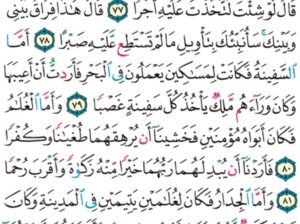 قَالَ لَوْ شِئْتَ لَتَّخَذْتَ عَلَيْهِ أَجْرًا ٧٧ قَالَ هَٰذَا فِرَاقُ بَيْنِي
وَبَيْنِكَ ۚ سَأُنَبِّئُكَ بِتَأْوِيلِ مَا لَمْ تَسْتَطِع عَّلَيْهِ صَبْرًا ٧٨ أَمَّا
السَّفِينَةُ فَكَانَتْ لِمَسَٰكِينَ يَعْمَلُونَ فِي الْبَحْرِ فَأَرَدتُّ أَنْ أَعِيبَهَا
وَكَانَ وَرَآءَهُم مَّلِكٌ يَأْخُذُ كُلَّ سَفِينَةٍ غَصْبًا ٧٩ وَأَمَّا الْغُلَٰمُ
فَكَانَ أَبَوَاهُ مُؤْمِنَيْنِ فَخَشِينَآ أَن يُرْهِقَهُمَا طُغْيَٰنًا وَكُفْرًا
٨٠ فَأَرَدْنَآ أَن يُبْدِلَهُمَا رَبُّهُمَا خَيْرًا مِّنْهُ زَكَوٰةً وَأَقْرَبَ رُحْمًا
٨١ وَأَمَّا الْجِدَارُ فَكَانَ لِغُلَٰمَيْنِ يَتِيمَيْنِ فِي الْمَدِينَةِ وَكَانَ